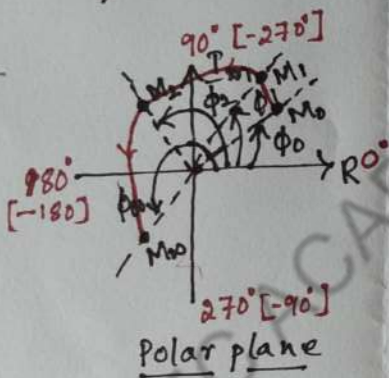 90° [-270°]
I
M₂
M₁
ϕ₂
ϕ₁
M₀
ϕ₀
R 0°
180°
[-180]
ϕ∞
M∞
270° [-90°]
Polar plane